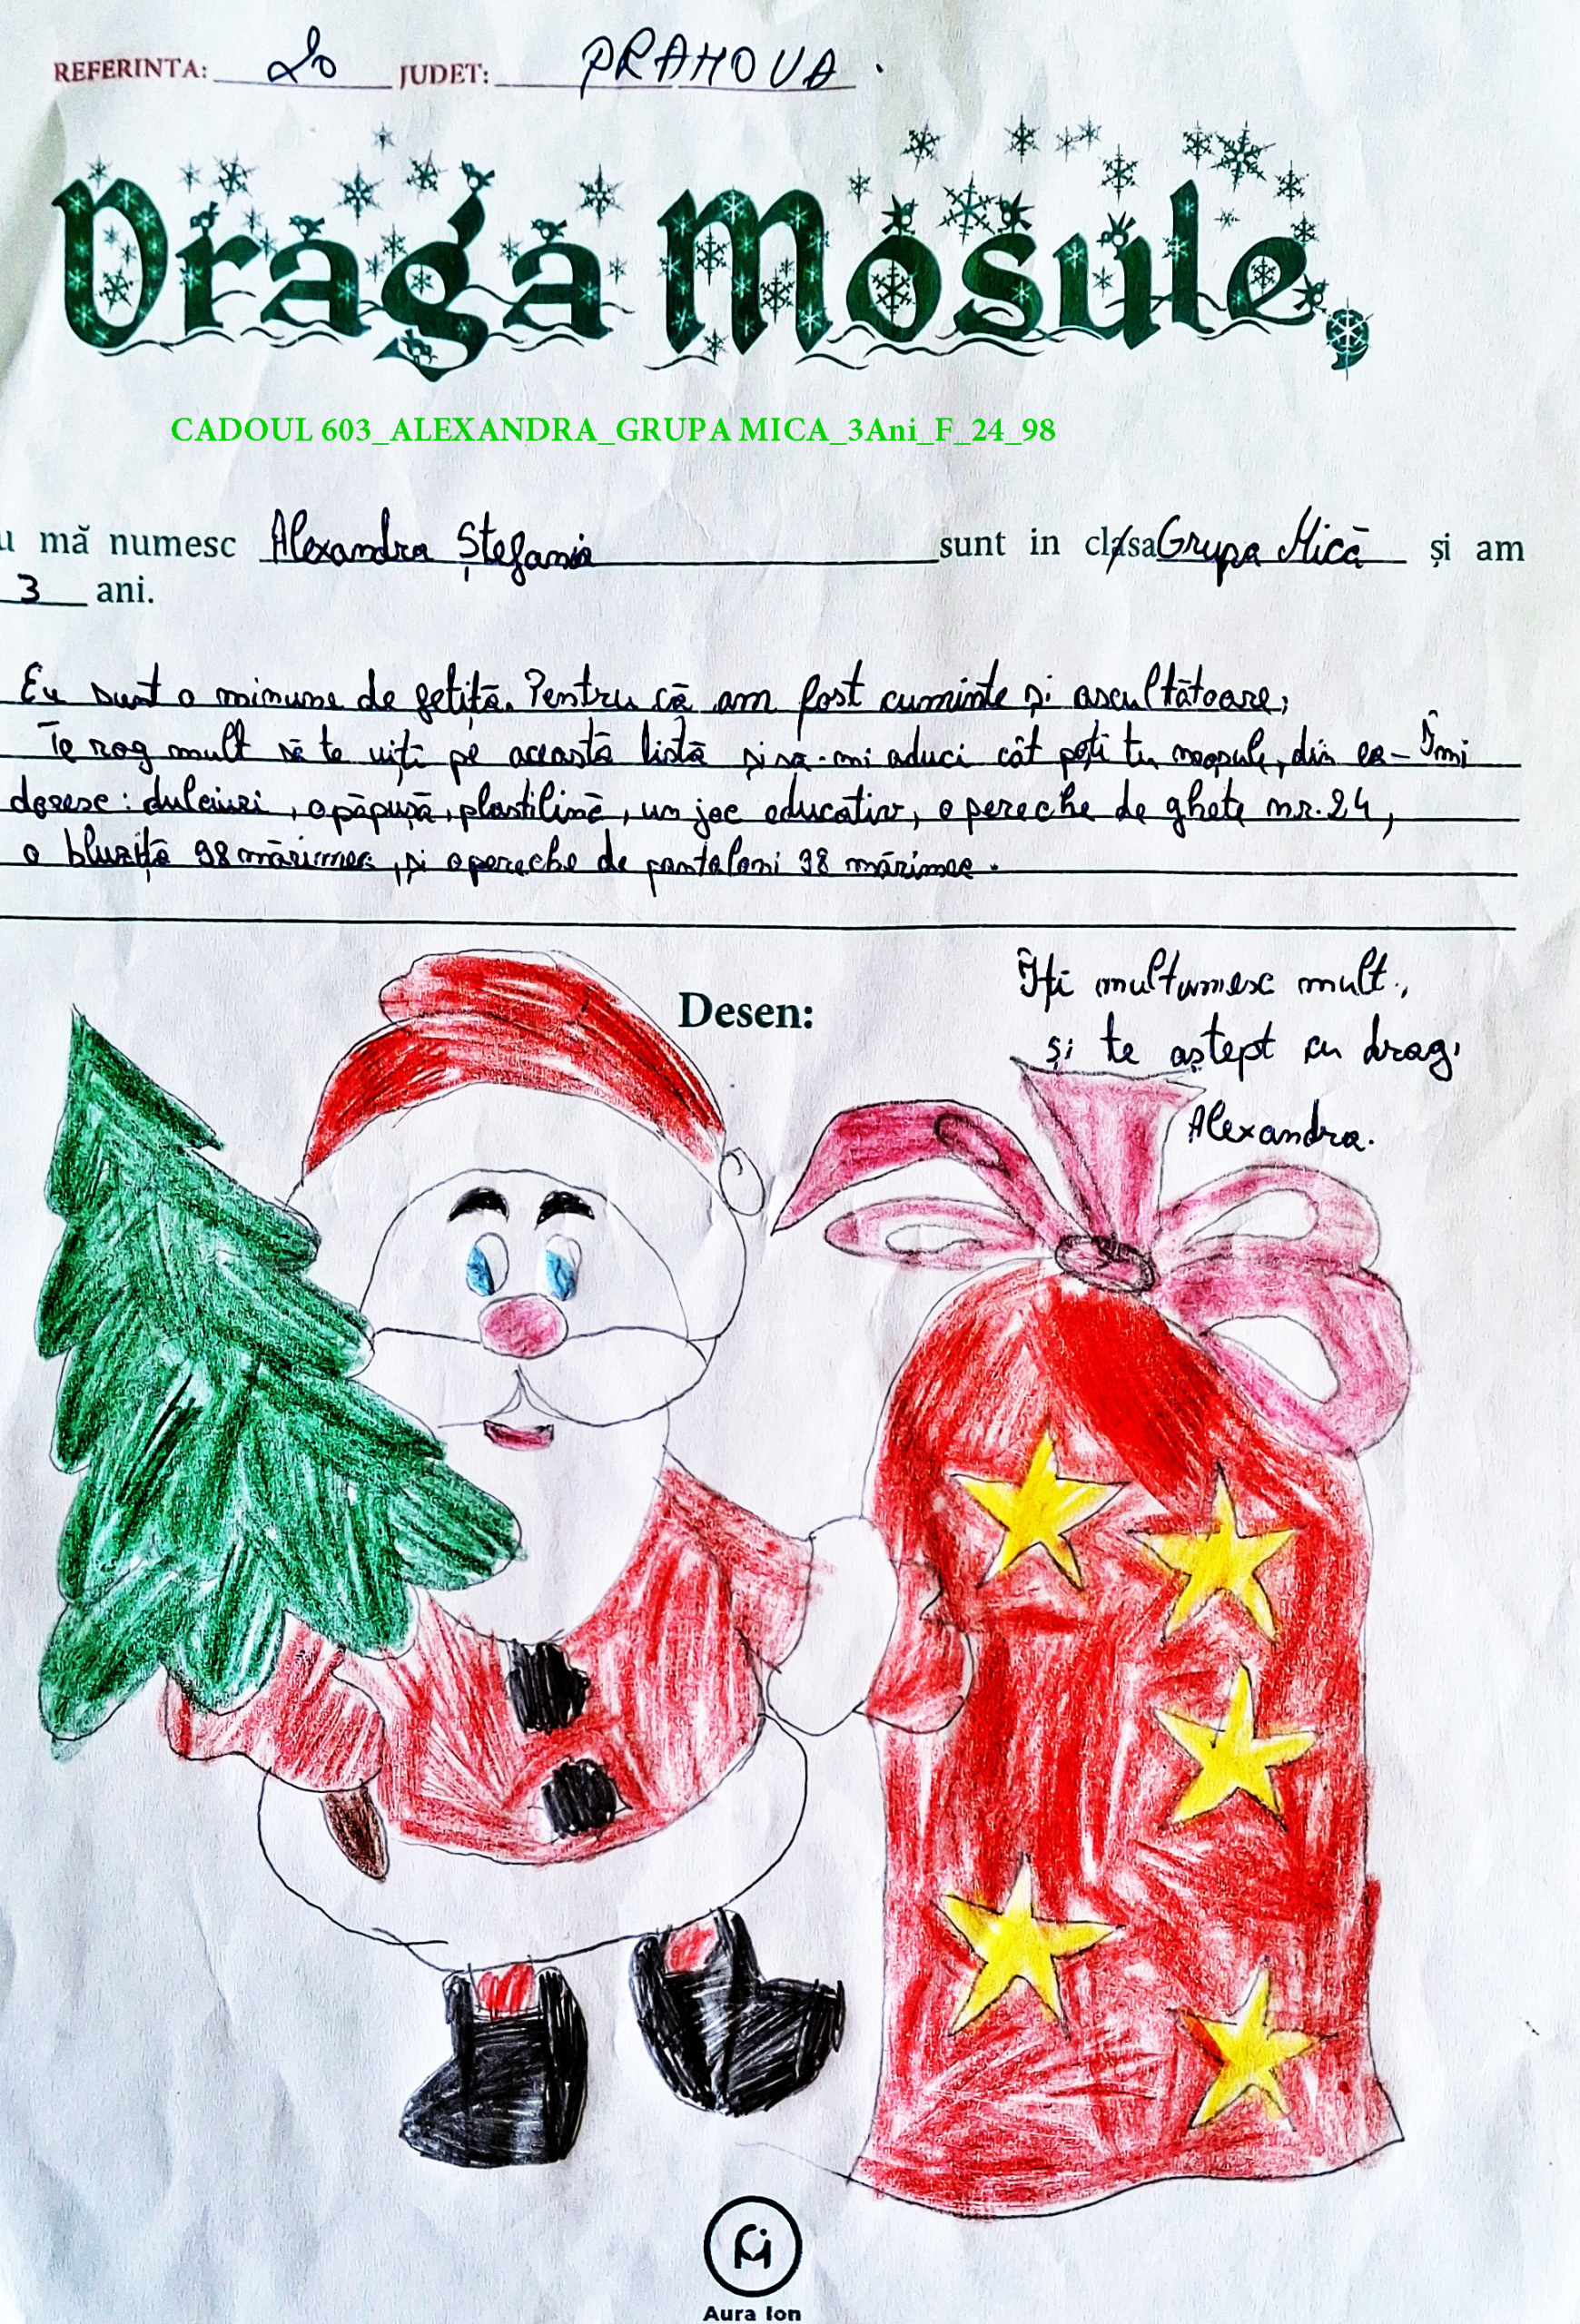 REFERINTA: 20 JUDET: PRAHOVA.
Draga Mosule,
CADOUL 603_ALEXANDRA_GRUPA MICA_3Ani_F_24_98
u mă numesc Alexandra Ștefania sunt in clasa Grupa Mică și am
3 ani.
Eu sunt o minune de fetiță. Pentru că am fost cuminte și ascultătoare,
Te rog mult să te uiți pe această listă și să-mi aduci cât poți tu moșule, din ea- Îmi
doresc: dulciuri, o păpușă, plastilină, un joc educativ, o pereche de ghete nr. 24,
o bluziță 98 mărimea, și o pereche de pantaloni 98 mărimea.
Desen:
Îți mulțumesc mult,
și te aștept cu drag,
Alexandra.
Aura Ion